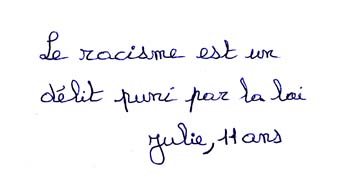 Le racisme est un
délit puni par la loi
Julie, 11 ans